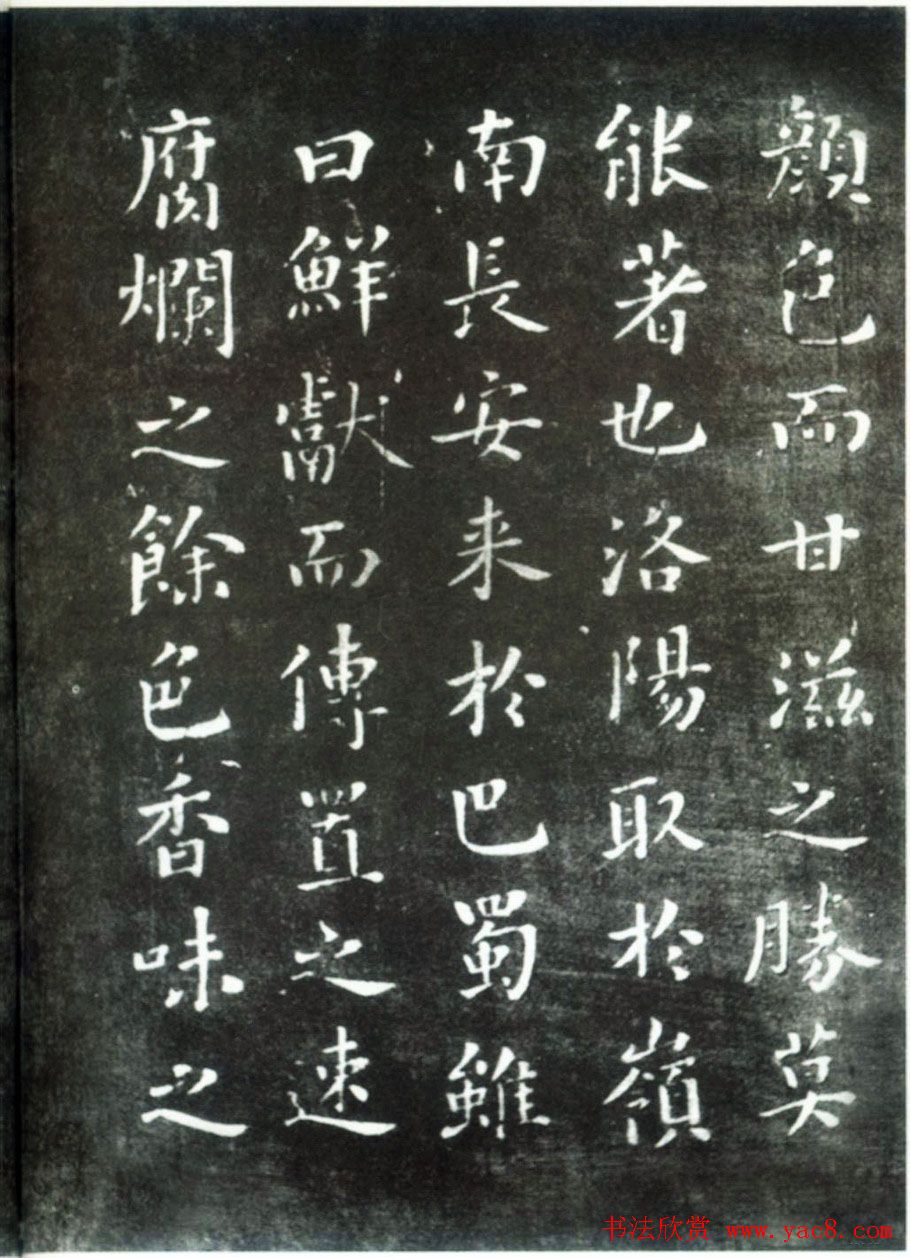 顏色而甘滋之勝莫
能著也洛陽取於嶺
南長安来於巴蜀雖
曰鮮獻而傳置之速
腐爛之餘色香味之
书法欣赏 www.yac8.com